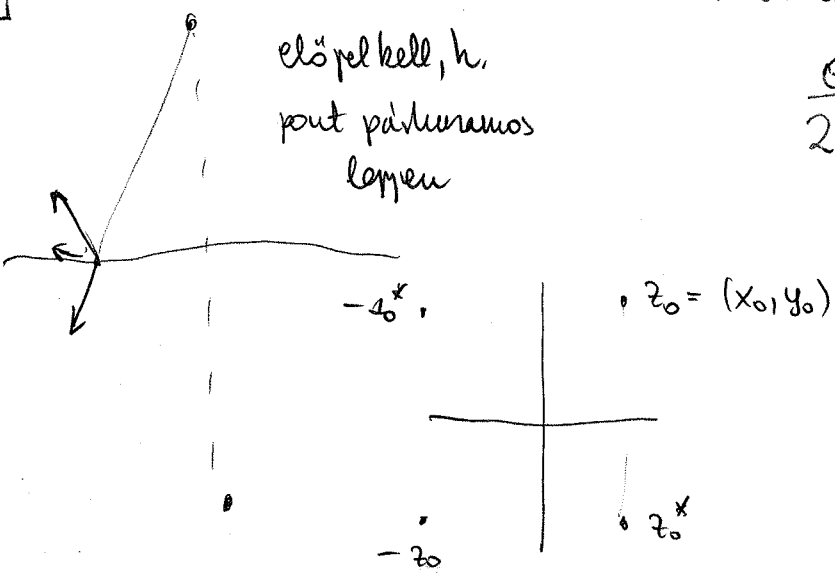 előjel kell, h.
pont párhuzamos
legyen
2
-z₀*
z₀ = (x₀, y₀)
-z₀
z₀*